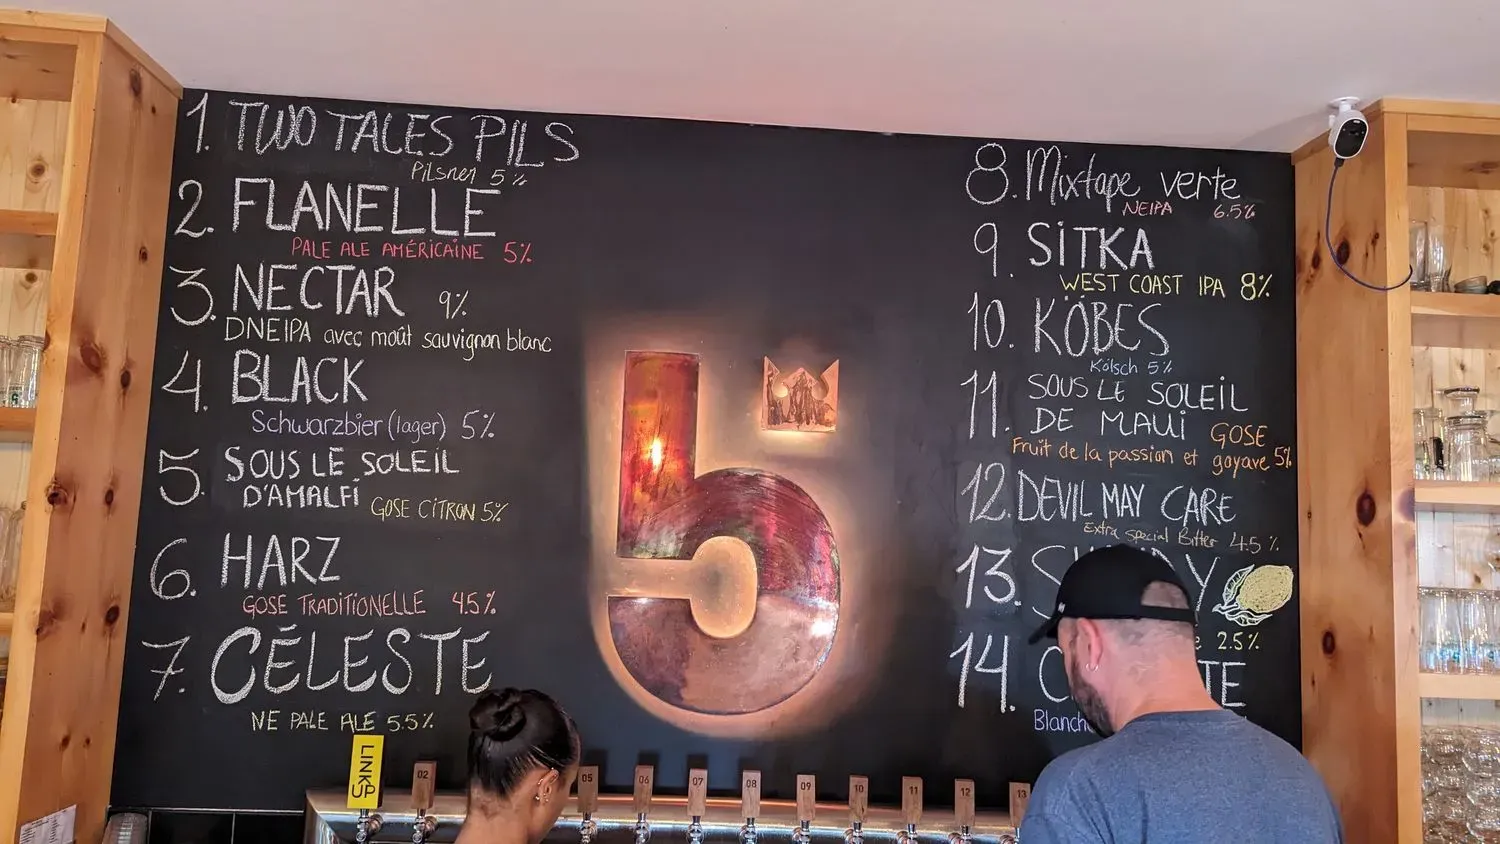 1. TWO TALES PILS
Pilsner 5%
2. FLANELLE
PALE ALE AMÉRICAINE 5%
3. NECTAR 9%
DNEIPA avec moût sauvignon blanc
4. BLACK
Schwarzbier (lager) 5%
5. SOUS LE SOLEIL
D'AMALFI GOSE CITRON 5%
6. HARZ
GOSE TRADITIONELLE 4.5%
7. CÉLESTE
NE PALE ALE 5.5%
5
8. Mixtape verte
NEIPA 6.5%
9. SITKA
WEST COAST IPA 8%
10. KÖBES
Kölsch 5%
11. SOUS LE SOLEIL
DE MAUI GOSE
Fruit de la passion et goyave 5%
12. DEVIL MAY CARE
Extra special Bitter 4.5%
13.
2.5%
14.
LINK UP
02
05
06
07
08
09
10
11
12
13